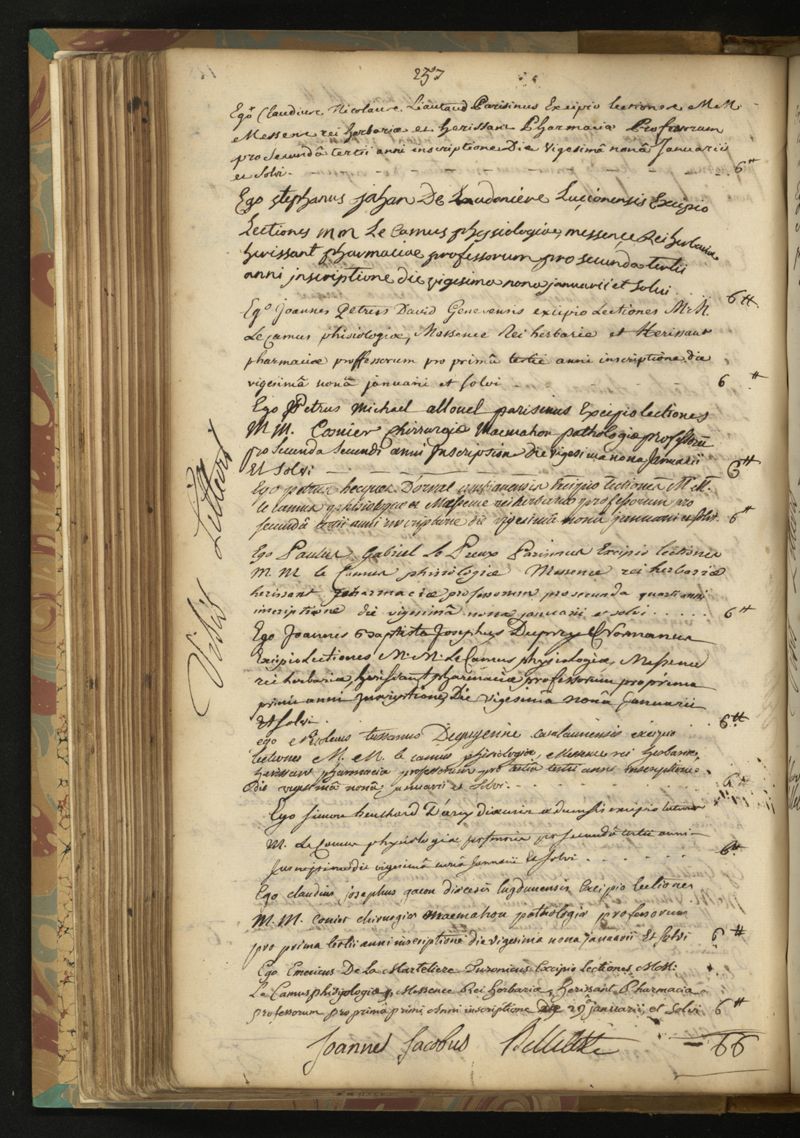 257
Ego Claudius Nicolaus Lieutaud Parisinus Excipio lectiones M M
Messence rei herbariæ et herissant Pharmaciæ Professorum
pro secundâ tertii anni inscriptione Die Vigesimâ nonâ Januarii
et Solvi. 6#
Ego stephanus johan De Laudoniere Luçionensis Excipio
Lectiones MM Le Camus physiologiæ, messençe Rei herbariæ
herissant pharmaciæ professorum pro secunda tertii
anni inscriptione die vigesima nona januarii et Solvi 6#
Ego Joannes Petrus David Genevensis excipio Lectiones M.M.
Le Camus phisiologiæ, Messence Rei herbariæ et Herissant
pharmaciæ proffessorum pro primâ tertii anni inscriptione die
vigesimâ nonâ januarii et solvi 6 #
Ego Petrus Michael allouel parisinus Excipio lectiones
M M. Cosnier chirurgiæ Macmahon pathologiæ professorum
pro secunda secundi anni Inscriptione die vigesima nona Januarii
Et Solvi 6#
Ego petrus hecquet excipio lectiones M M.
le camus physiologiæ Messence rei herbariæ professorum pro
secundâ tertii anni inscriptione die vigesimâ nonâ januarii et solvi 6#
Ego Paulus Gabriel le Preux Parisinus Excipio lectiones
M M le Camus phisiologiæ Messence rei herbariæ
herissant pharmaciæ professorum pro secunda quarti anni
inscriptione die vigesimâ nona januarii et solvi . . . . . 6#
Ego Joannes Baptista Josephus
Excipio Lectiones M. M. Le Camus physiologiæ, Messence
rei herbariæ, herissant pharmaciæ professorum pro prima
primi anni inscriptione, Die vigesimâ nonâ Januarii
Et solvi . 6#
ego excipio
lectiones M. M. le camus phisiologiæ, Messence rei herbariæ,
herissant pharmaciæ professorum pro tertia tertii anni inscriptione
die vigesimâ nonâ januarii et Solvi. 6#
Ego simon excipio lectiones
M. Le Camus physiologiæ professoris pro secundâ tertii anni
inscriptione die vigesimâ nonâ Januarii Et Solvi 6#
Ego claudius josephus diocesis lugdunensis Excipio Lectiones
M. M. Cosnier chirurgiæ macmahon pathologiæ professorum
pro prima tertii anni inscriptione die vigesima nona januarii Et solvi 6 #
Ego Emericus De La Marteliere Turonicus Excipio Lectiones M.M.
Le Camus phisyologiæ, Messence Rei herbariæ, herissant Pharmaciæ
professorum pro primâ primi Anni inscriptione Die 29â januarii, et Solvi 6 #
Joannes Jacobus Bellettete 66